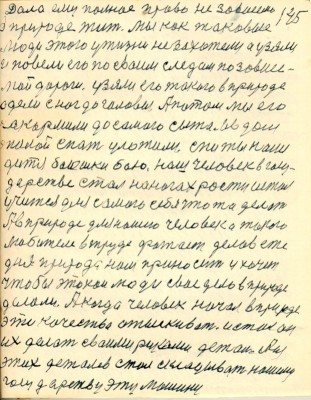 Дало ему полное право не зависимо 125
в природе жит. мы как таковые
люди этого у жизни не захотели а узяли
и повели его по своим следам по зовсе-
мой дороги. узяли его такого в природе
одели с ног до головы. А потом мы его
накормили до самого сыта. и в дом
такой спат уложили, спи ты наш
дитя баюшки баю, наш человек в госу-
дарстве стал на ногах рости и стал
учится для самого себя это та делат
А в природе для нашего человека такого
любителя в труде хватает делов все
дня природа нам приносит и хочет
чтобы этакои люди свое дело в природе
делали. А когда человек начал в природе
эти качества отыскиват. и стал он
их делат своими руками детал. А из
этих деталев стал складыват нашему
государству эту машину